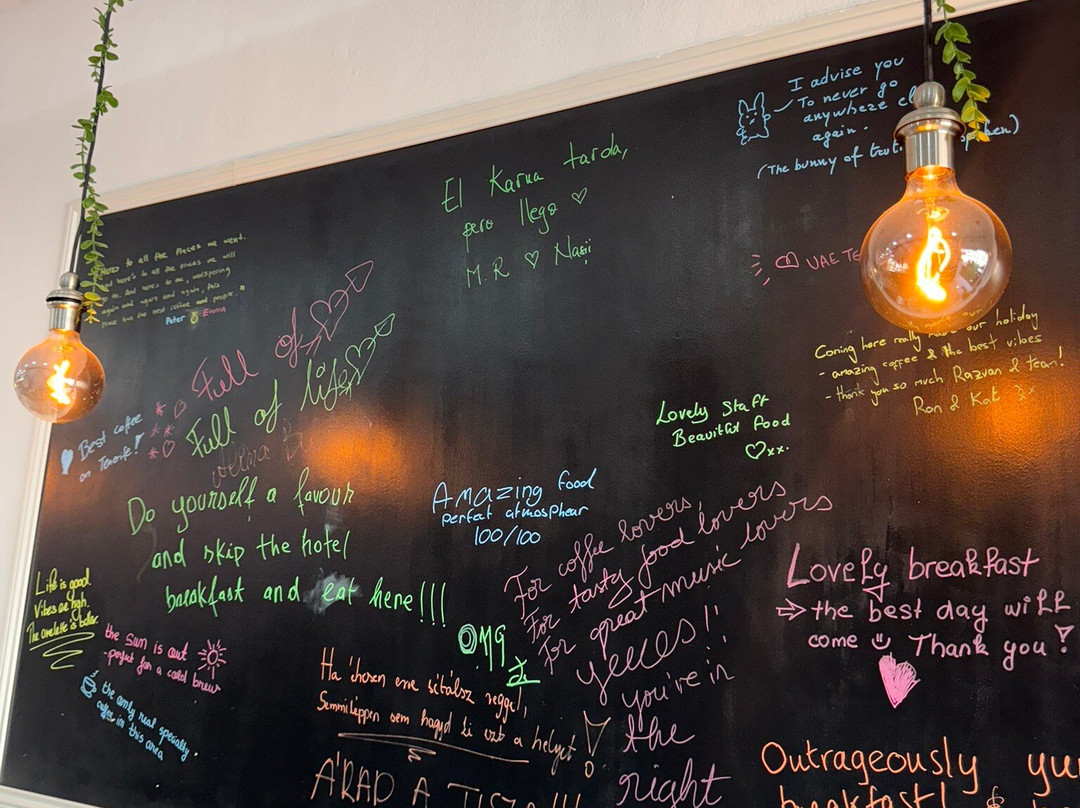 I advise you
To never go
anywheze
again.
(The bunny of
El Karma tarda,
pero llega ♡
M.R ♡ Nasii
to all the places we went.
And here's to all the places we will
again and again and again,
Peter Emma
UAE
Full of
Full of life
Coming here really our holiday
- amazing coffee & the best vibes
- thank you so much Razvan & team!
Ron & Kat xx
Best coffee
on Tenerife!
Lovely Staff
Beautiful food
♡xx.
Do yourself a favour
and skip the hotel
breakfast and eat here!!!
Amazing food
perfect atmosphear
100/100
For coffee lovers,
For tasty food lovers
For great music lovers
yesss!!
you're in
the
right
Life is good
Vibes are high.
The omelette is
the sun is out
-perfect for a cold brew
the only real specialty
coffee in this area
OMG
Ha erre sétálsz reggel,
Semmiképpen sem hagyd ki ezt a helyet!
ÁRAD A TISZA!!!
Lovely breakfast
⇒ the best day will
come Thank you!
Outrageously
breakfast!